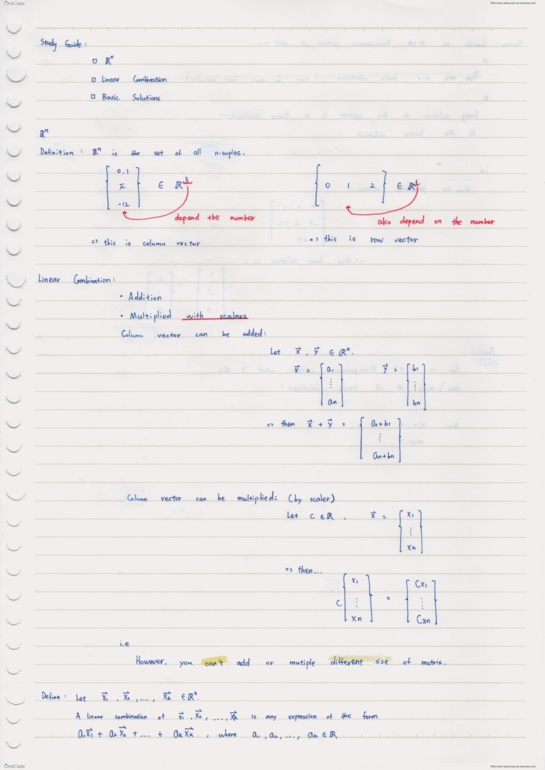 OneClass
Study Guide:
□ ℝⁿ
□ Linear Combination
□ Basic Solutions
ℝⁿ
Definition: ℝⁿ is the set of all n-tuples.
[0.1 π -12] ∈ ℝ³
[0 1 2] ∈ ℝ
depend the number
also depend on the number
=> this is column vector
=> this is row vector
Linear Combination:
• Addition
• Multiplied with scalars
Column vector can be added:
Let x⃗, y⃗ ∈ ℝⁿ.
x⃗ = [a₁ ⋮ aₙ] y⃗ = [b₁ ⋮ bₙ]
=> then x⃗ + y⃗ = [a₁+b₁ ⋮ aₙ+bₙ]
Column vector can be multiplied: (by scaler)
Let C ∈ ℝ, x⃗ = [x₁ ⋮ xₙ]
=> then...
C [x₁ ⋮ xₙ] = [Cx₁ ⋮ Cxₙ]
i.e
However, you can't add or mutiple different size of matrix.
Define: Let x⃗₁, x⃗₂, ..., x⃗ₖ ∈ ℝⁿ.
A linear combination of x⃗₁, x⃗₂, ..., x⃗ₖ is any expression of the form
a₁x⃗₁ + a₂x⃗₂ + ... + aₖx⃗ₖ, where a₁, a₂, ..., aₖ ∈ ℝ
OneClass